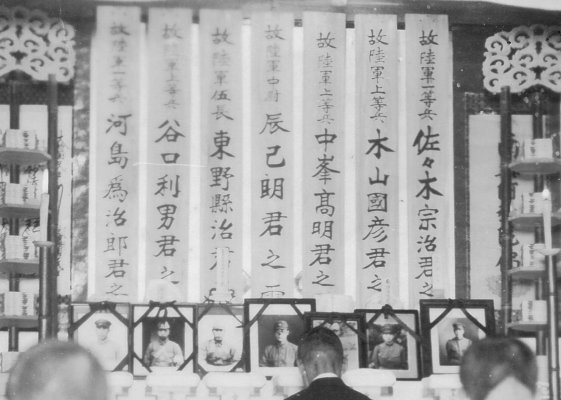 故陸軍一等兵佐々木宗治君之
故陸軍上等兵木山國彦君之
故陸軍上等兵中峯髙明君之
故陸軍中尉辰己明君之霊
故陸軍伍長東野縣治君之
故陸軍上等兵谷口利男君之
故陸軍一等兵河島爲治郎君之